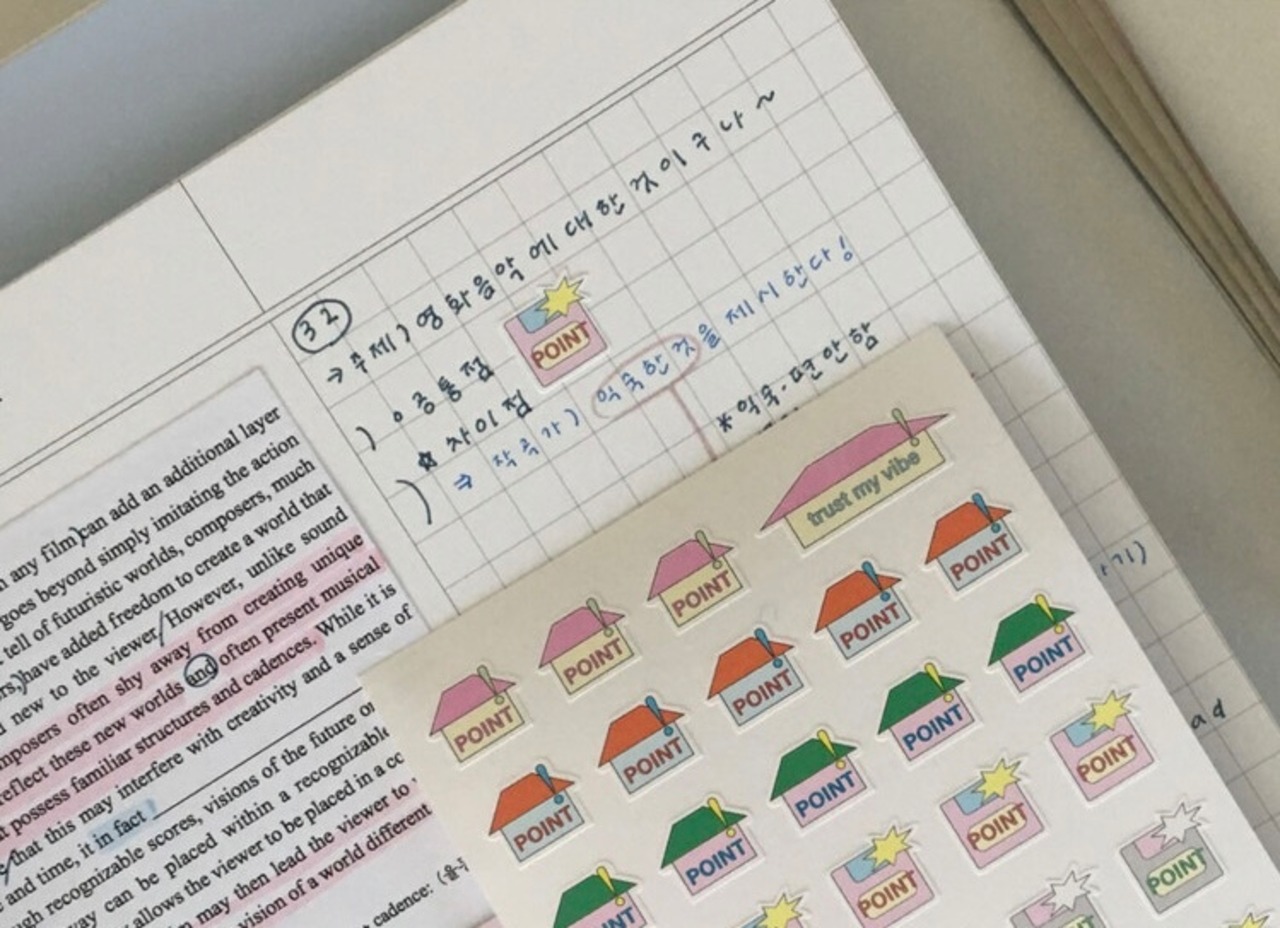 32
→ 주제) 영화음악에 대한 것이구나~
) o 공통점
POINT
) ☆ 차이점
⇒ 작곡가) 익숙한 것을 제시한다!
*익숙·편안함
any film)can add an additional layer
goes beyond simply imitating the action
tell of futuristic worlds, composers, much
have added freedom to create a world that
new to the viewer/However, unlike sound
mposers often shy away from creating unique
reflect these new worlds and often present musical
t possess familiar structures and cadences. While it is
that this may interfere with creativity and a sense of
and time, it in fact!
gh recognizable scores, visions of the future or
way can be placed within a recognizable
allows the viewer to be placed in a co
may then lead the viewer to
vision of a world different
cadence: (음
trust my vibe
POINT
POINT
POINT
POINT
POINT
POINT
POINT
POINT
POINT
POINT
POINT
POINT
POINT
POINT
POINT
POINT
기)
ad